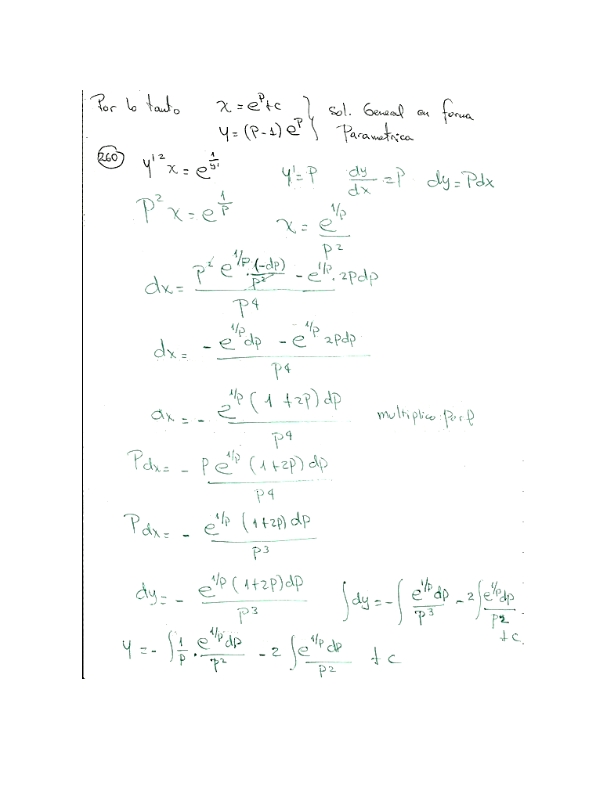 Por lo tanto x = e^p + c } sol. General en forma
y = (P-1) e^p } Parametrica
260 y'² x = e^(1/y') y' = P dy/dx = P dy = Pdx
P² x = e^(1/P) x = e^(1/p) / p²
dx = (p² e^(1/p) · (-dp)/p² - e^(1/p) · 2pdp) / p⁴
dx = (-e^(1/p) dp - e^(1/p) 2pdp) / p⁴
dx = - e^(1/p) (1 + 2p) dp / p⁴ multiplico por p
Pdx = - P e^(1/p) (1+2p) dp / p⁴
Pdx = - e^(1/p) (1+2p) dp / p³
dy = - e^(1/p) (1+2p) dp / p³ ∫dy = - ∫ e^(1/p) dp / p³ - 2 ∫ e^(1/p) dp / p² + c
y = - ∫ 1/p · e^(1/p) dp / p² - 2 ∫ e^(1/p) dp / p² + c